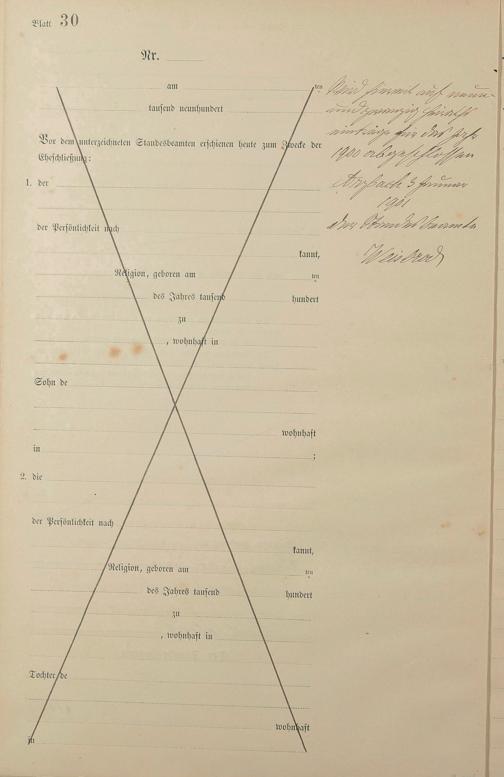 Blatt 30
Nr.
am ten
tausend neunhundert
Vor dem unterzeichneten Standesbeamten erschienen heute zum Zwecke der
Eheschließung:
1. der
der Persönlichkeit nach
kannt,
Religion, geboren am ten
des Jahres tausend hundert
zu
, wohnhaft in
Sohn de
wohnhaft
in ;
2. die
der Persönlichkeit nach
kannt,
Religion, geboren am ten
des Jahres tausend hundert
zu
, wohnhaft in
Tochter de
wohnhaft
in
Wird hiermit auf neun-
undzwanzig Heiraths
einträge für das Jahr
1900 abgeschlossen
3 Januar
1901
der Standesbeamte